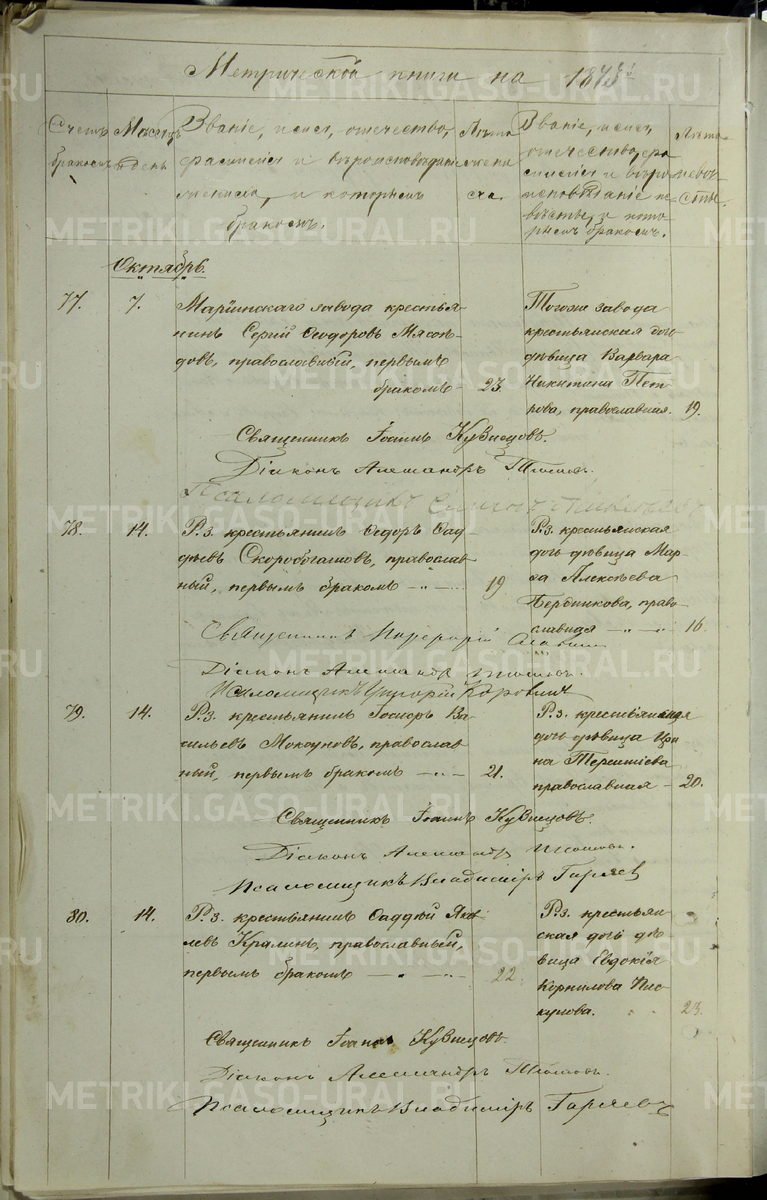 Метрической книги на 1873 г.
Счетъ браковъ
Мѣсяцъ и день
Званіе, имя, отечество,
фамилія и вѣроисповѣданіе
жениха, и которымъ
бракомъ.
Лѣта
жени
ха.
Званіе, имя,
отечество, фа
милія и вѣро
исповѣданіе не
вѣсты, и кото
рымъ бракомъ.
Лѣта
невѣ
сты.
Октябрь.
77.
7.
Маріинскаго завода крестья
нинъ Сергій Ѳеодоровъ Мясоѣ
довъ, православный, первымъ
бракомъ
23.
Тогоже завода
крестьянская дочь
дѣвица Варвара
Никитина Пет
рова, православная.
19.
Священникъ Іоаннъ Кузнецовъ.
Діаконъ Александръ
Псаломщикъ
78.
14.
Р. з. крестьянинъ Ѳедоръ Ѳад
дѣевъ Скоробогатовъ, православ
ный, первымъ бракомъ — „ —
19
Р. з. крестьянская
дочь дѣвица Мар
ѳа Алексѣева
Бердникова, право
славная — „ —
16.
Священникъ
Діаконъ Александръ
Псаломщикъ Григорій
79.
14.
Р. з. крестьянинъ Ва
сильевъ Мокроусовъ, православ
ный, первымъ бракомъ — „ —
21.
Р. з. крестьянская
дочь дѣвица Ири
на Терентіева
православная —
20.
Священникъ Іоаннъ Кузнецовъ.
Діаконъ Александръ
Псаломщикъ Владиміръ Гаряев
80.
14.
Р. з. крестьянинъ Ѳаддѣй Яков
левъ православный,
первымъ бракомъ — „ —
22.
Р. з. крестьян
ская дочь дѣ
вица Евдокія
Корнилова Пис
кунова.
23.
Священникъ Іоаннъ Кузнецовъ.
Діаконъ Александръ
Псаломщикъ Владиміръ Гаряевъ
METRIKI.GASO-URAL.RU